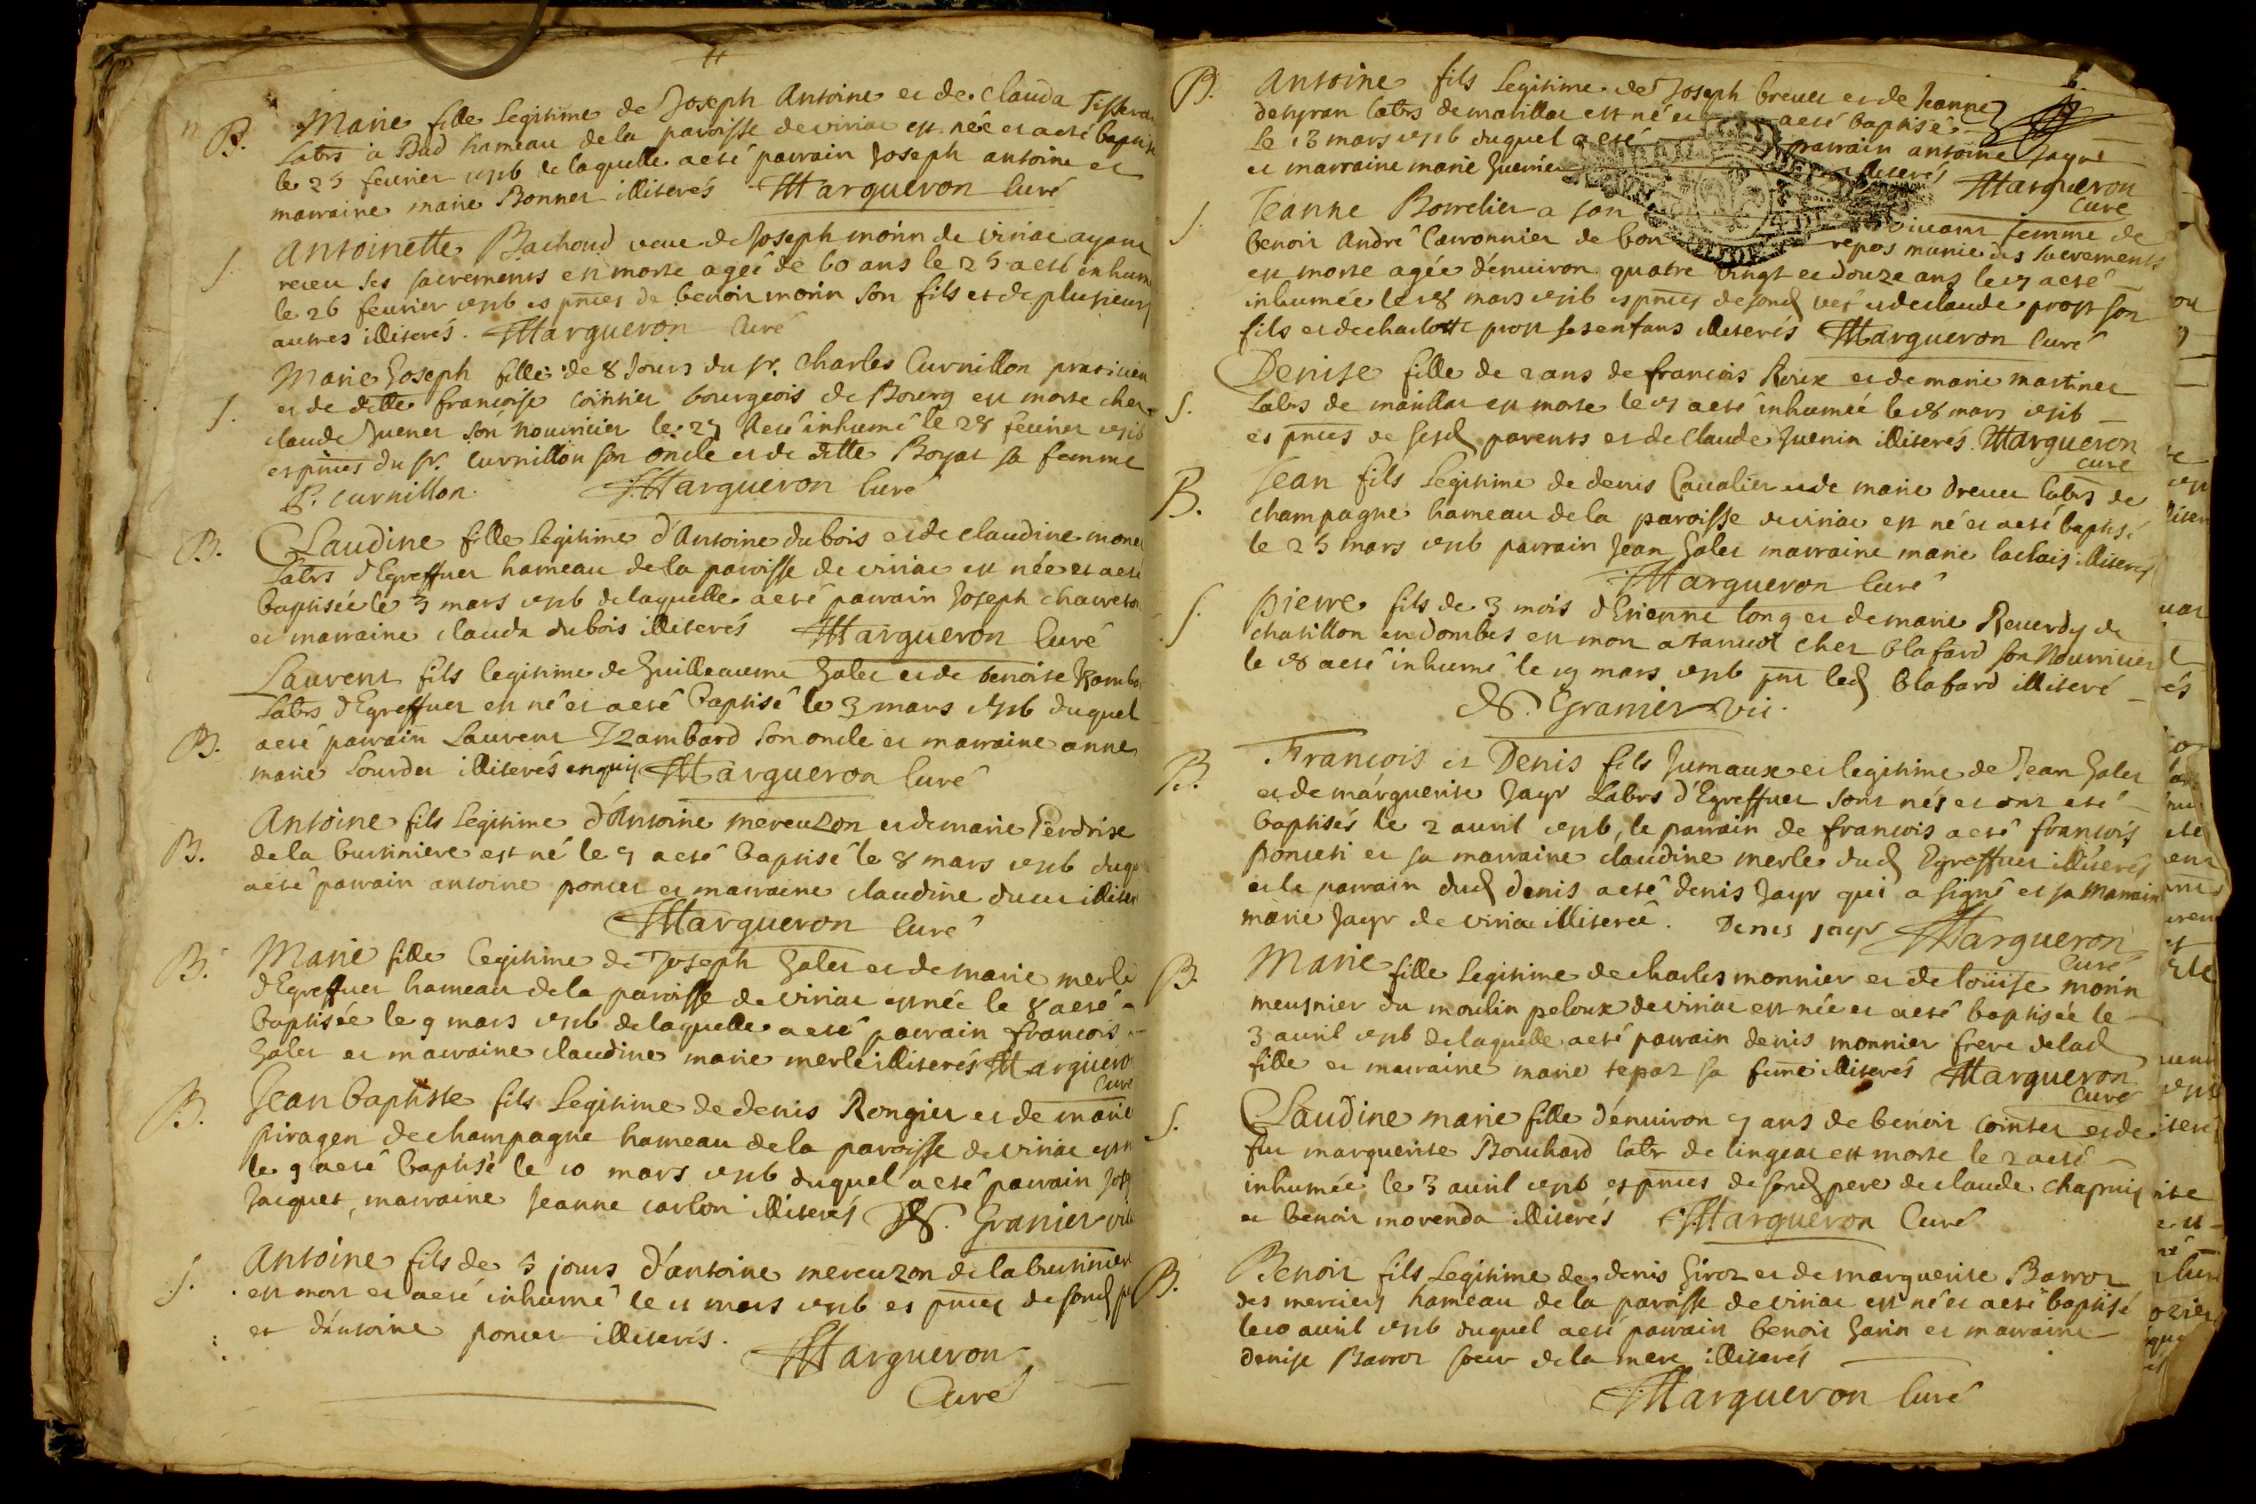 B. Marie fille Legitime de Joseph Antoine et de Clauda
Labrs a Bad hameau de la paroisse de viriac est née et a eté
le 25 fevrier 1716 de laquelle a eté parrain Joseph antoine et
marraine marie Bonnet illiterés Margueron Curé
S. Antoinette Bachoud veuve de Joseph morin de viriac ayant
receu ses sacrements est morte ageé de 60 ans le 25 a eté
le 26 fevrier 1716 es pnces de benoit morin son fils et de plusieurs
autres illiterés. Margueron Curé
Marie Joseph fille de 8 Jours du sr. Charles Curnillon praticien
S. et de delle francoise Cointier bourgeois de Bourg est morte chez
claude Juenet son nourricier le 27 a eté inhumé le 28 fevrier 1716
es pnces du sr. Curnillon son oncle et de delle Boyat sa femme
P. Curnillon. Margueron Curé
B. Claudine fille legitime d'Antoine dubois et de claudine
Labrs d'Egreffuet hameau de la paroisse de viriac est née et a eté
baptisée le 3 mars 1716 de laquelle a eté parrain Joseph
et marraine clauda dubois illiterés Margueron Curé
Laurent fils legitime de Guilleaume Galet et de benoite
Labrs d'Egreffuet est né et a eté baptisé le 3 mars 1716 duquel
B. a eté parrain Laurent Zambard son oncle et marraine anne
marie Lourdet illiterés enquis Margueron Curé
Antoine fils Legitime d'Antoine mereuzon et de marie Perdrise
B. de laburtiniere est né le 7 a eté baptisé le 8 mars 1716
a eté parrain antoine poncet et marraine claudine
Margueron Curé
B. Marie fille Legitime de Joseph Galet et de marie merle
d'Egreffuet hameau de la paroisse de viriac est née le 8 a eté
baptisée le 9 mars 1716 de laquelle a eté parrain francois
Galet et marraine claudine marie merle illiterés Margueron
Curé
B. Jean baptiste fils Legitime de denis Rongier et de marie
piragen de champagne hameau de la paroisse de viriac
le 9 a eté baptisé le 10 mars 1716 duquel a eté parrain
Jacquet, marraine Jeanne carlon illiterés Granier
S. Antoine fils de 3 jours d'antoine mereuzon de la
est mort et a eté inhumé le 11 mars 1716 es pnces de sond
et d'antoine poncet illiterés.
Margueron
Curé
B. Antoine fils Legitime de Joseph breuet et de Jeanne
labrs de marillac est né et a eté baptisé
Le 13 mars 1716 duquel a eté parrain antoine Jayr
et marraine marie illiterés Margueron
Curé
S. Jeanne Borrelier a son vivant femme de
benoit André Carronnier de bon repos munie des sacrements
est morte agée d'enuiron quatre vingt et douze ans le 17 a eté
inhumée le 18 mars 1716 es pnces de sond et de claude prost son
fils et de charlotte prost ses enfans illiterés Margueron Curé
Denise fille de 2 ans de francois Roux et de marie martinet
S. Labrs de marillac est morte le 17 a eté inhumeé le 18 mars 1716
es pnces de sesd parents et de claude Juenin illiterés. Margueron
Curé
B. Jean fils Legitime de denis Caualier et de marie dreuet labrs de
champagne hameau de la paroisse de viriac est né et a eté baptisé
le 25 mars 1716 parrain Jean Galet marraine marie lachais illiterés
Margueron Curé
S. pierre fils de 3 mois d'Etienne long et de marie Reuerdy de
chatillon en dombes est mort a chez blafard son Nourricier
le 18 a eté inhumé le 19 mars 1716 pnt led blafard illiteré
Granier vic.
B. Francois et Denis fils Jumaux et legitime de Jean Galet
et de marguerite Jayr Labrs d'Egreffuet sont nés et ont eté
baptisés le 2 auril 1716, le parrain de francois a eté francois
poncet et sa marraine claudine merle dud Egreffuet illiterés
et le parrain dud denis a eté denis Jayr qui a signé et sa marraine
marie Jayr de viriac illiterée. Denis jayr Margueron
Curé
B. Marie fille Legitime de charles monnier et de loüise morin
meusnier du moulin peloux de viriac est née et a eté baptisée le
3 auril 1716 de laquelle a eté parrain denis monnier frere de lad
fille et marraine marie tepaz sa feme illiterés Margueron
Curé
S. Claudine marie fille d'enuiron 7 ans de benoit cointet et de
fue marguerite Bouchard labr de lingeat est morte le 2 a eté
inhumée le 3 auril 1716 es pnces de sond pere de claude chapuis
et benoit morenda illiterés Margueron Curé
B. Benoit fils Legitime de denis Giroz et de marguerite Barroz
des merciers hameau de la paroisse de viriac est né et a eté baptisé
le 10 auril 1716 duquel a eté parrain benoit Garin et marraine
denise Barroz soeur de la mere illiterés
Margueron Curé